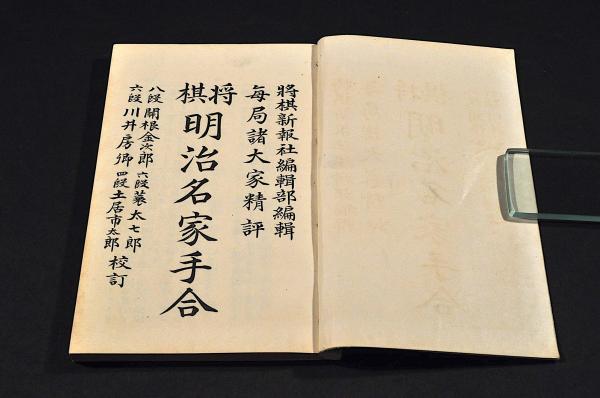 將棋新報社編輯部編輯
每局諸大家精評
将棋明治名家手合
八段関根金次郎 六段蓑太七郎
六段川井房卿 四段土居市太郎 校訂